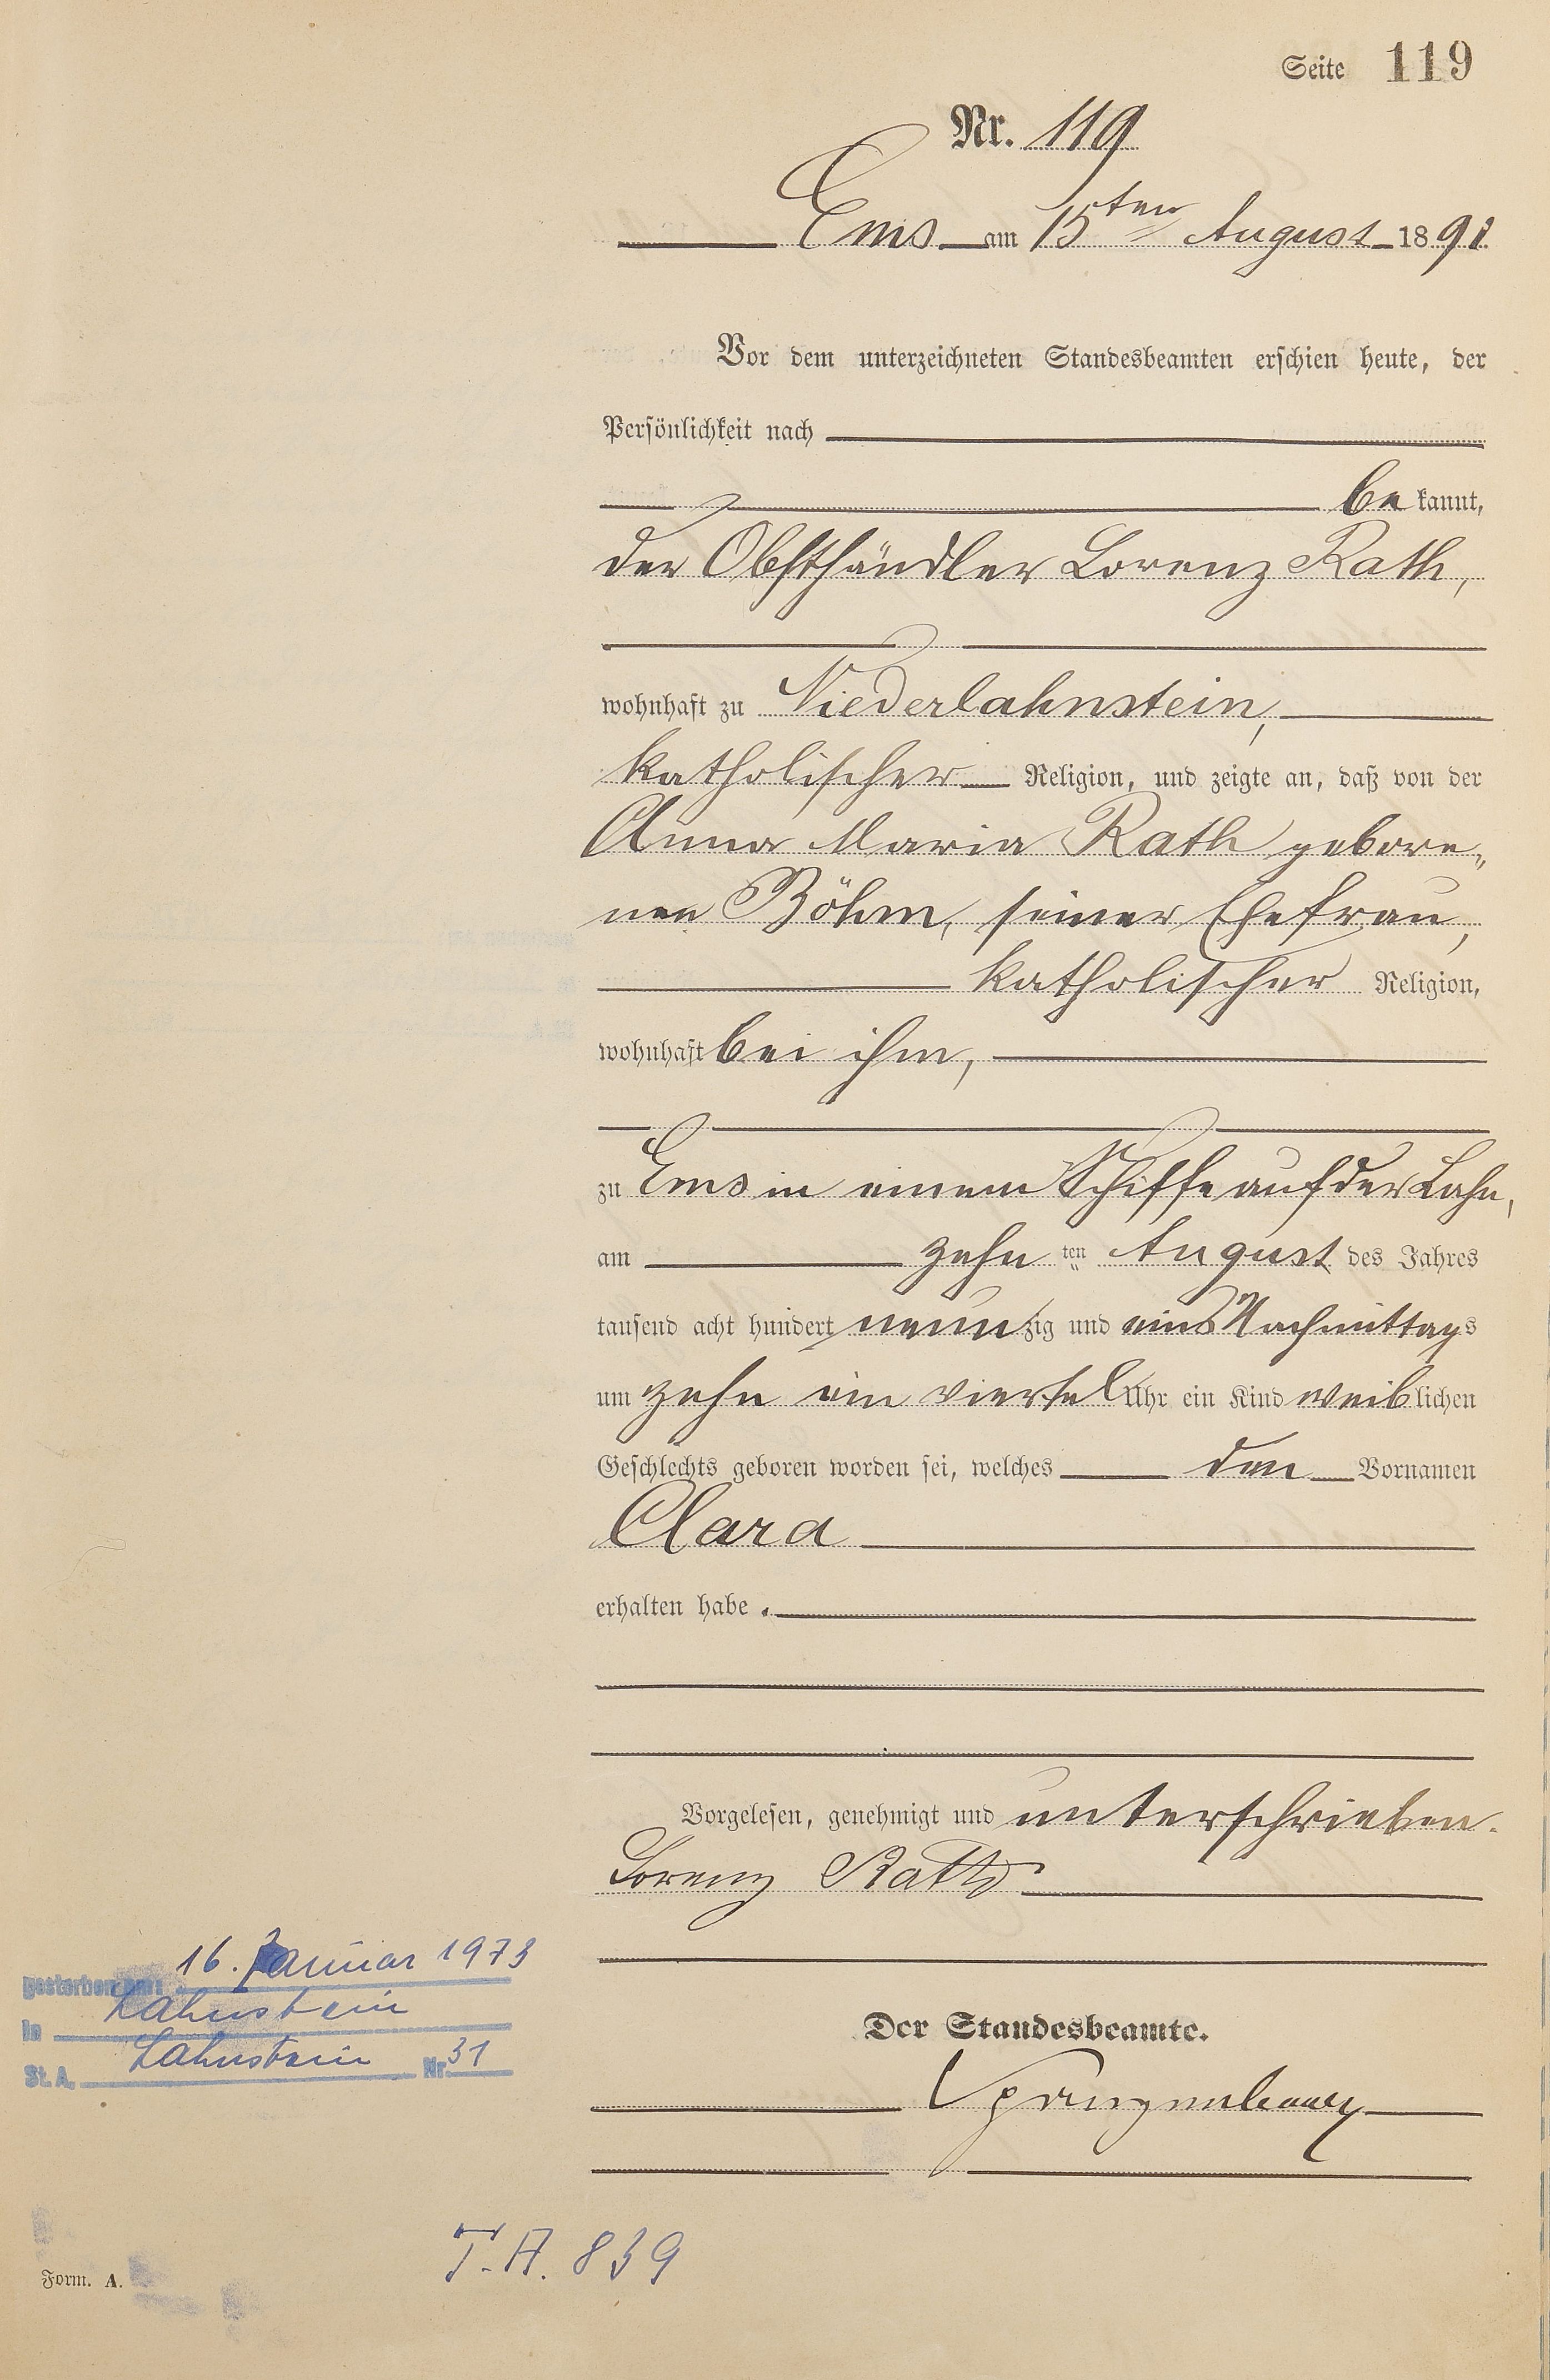 Seite 119
Nr. 119
Ems am 15ten August 1891
Vor dem unterzeichneten Standesbeamten erschien heute, der
Persönlichkeit nach
be kannt,
der Obsthändler Lorenz Rath,
wohnhaft zu Niederlahnstein,
katholischer Religion, und zeigte an, daß von der
Anna Maria Rath gebore„
nen Böhm, seiner Ehefrau,
katholischer Religion,
wohnhaft bei ihm,
zu Ems in einem Schiffe auf der Lahn,
am zehn ten August des Jahres
tausend acht hundert neunzig und eins Nachmittags
um zehn ein viertel Uhr ein Kind weiblichen
Geschlechts geboren worden sei, welches den Vornamen
Clara
erhalten habe.
Vorgelesen, genehmigt und unterschrieben.
Lorenz Rath
gestorben am 16. Januar 1973
in Lahnstein
St. A. Lahnstein Nr. 31
Der Standesbeamte.
T. A. 839
Form. A.